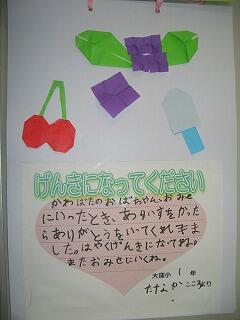 げんきになってください
かわばたのおばちゃん、おみせ
にいったとき、あいすをかった
らありがとうをいってくれました
した。はやくげんきになってね。
またおみせにいくね。
大窪小 1 年
たなか こころより